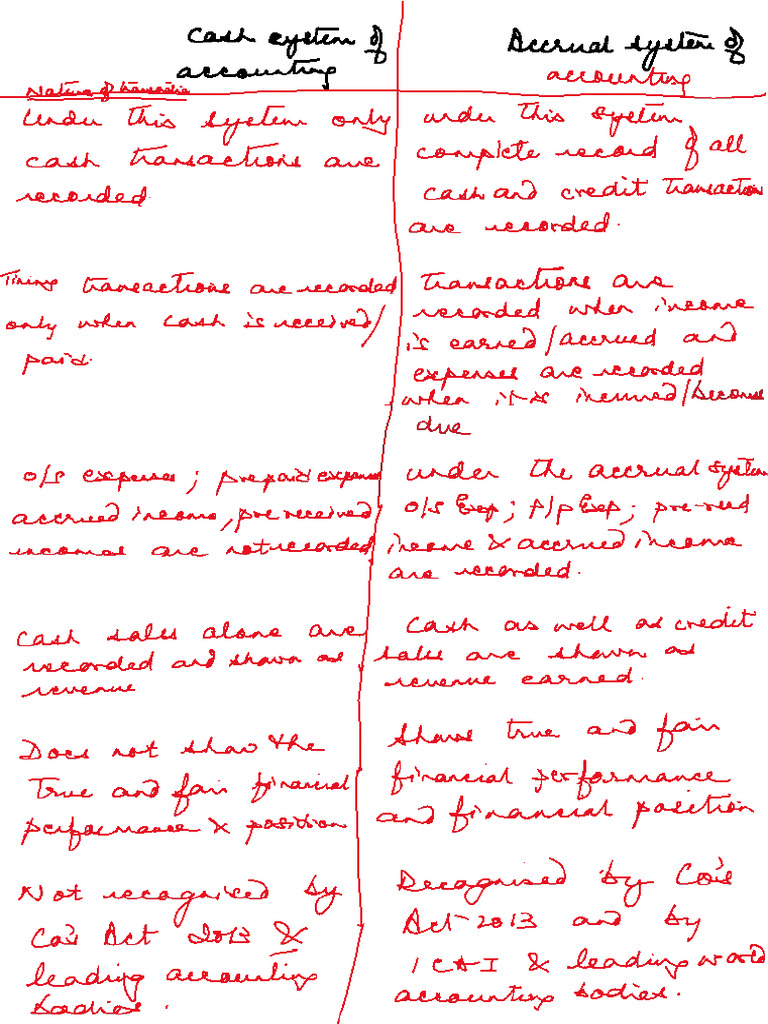 Cash system of
accounting
Accrual system of
accounting
Nature of transactio
Under this system only
cash transactions are
recorded.
under this system,
complete record of all
cash and credit transaction
are recorded.
Timing transactions are recorded
only when cash is received/
paid.
Transactions are
recorded when income
is earned/accrued and
expenses are recorded
when it is incurred/become
due
o/s expenses; prepaid expense
accrued income, pre received
incomes are not recorded
under the accrual system
o/s Exp; P/p Exp; pre-recd
income & accrued income
are recorded.
Cash sales alone are
recorded and shown as
revenue
Cash as well as credit
sales are shown as
revenue earned.
Does not show the
True and fair financial
performance & position
Shows true and fair
financial performance
and financial position
Not recognised by
Co's Act 2013 &
leading accounting
bodies.
Recognised by Co's
Act-2013 and by
ICAI & leading world
accounting bodies.